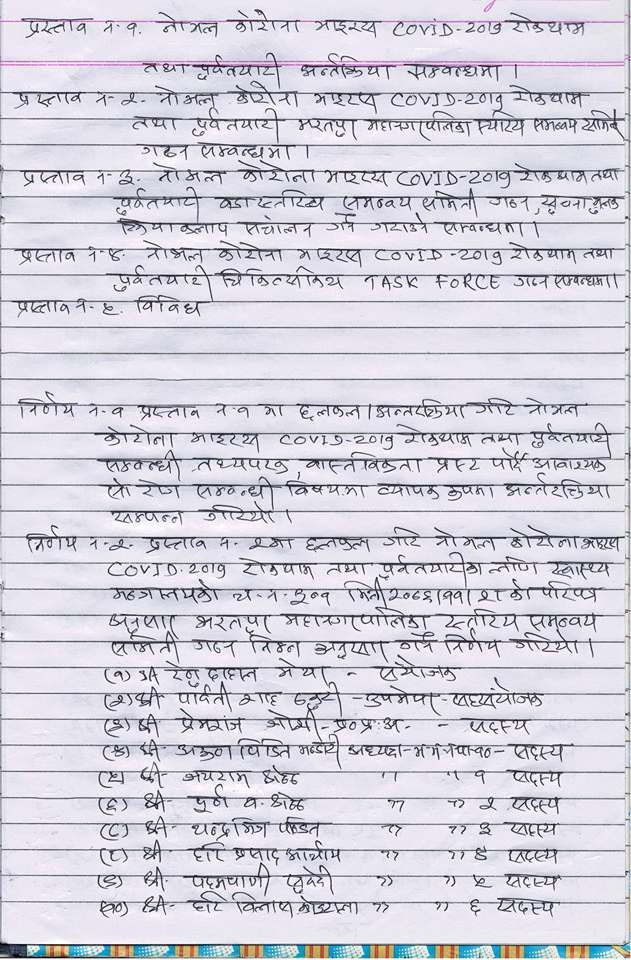 प्रस्ताव नं-१. नोभल कोरोना भाइरस COVID-2019 रोकथाम
तथा पुर्वतयारी अर्न्तक्रिया सम्बन्धमा ।
प्रस्ताव नं-२. नोभल कोरोना भाइरस COVID-2019 रोकथाम
तथा पुर्वतयारी भरतपुर महानगरपालिका स्तरिय समन्वय समिति
गठन सम्बन्धमा ।
प्रस्ताव नं-३. नोभल कोरोना भाइरस COVID-2019 रोकथाम तथा
पुर्वतयारी वडा स्तरिय समन्वय समिती गठन, सुचना मुलक
क्रियाकलाप संचालन गर्ने गराउने सम्बन्धमा ।
प्रस्ताव नं-४. नोभल कोरोना भाइरस COVID-2019 रोकथाम तथा
पुर्वतयारी चिकित्सकिय TASK FORCE गठन सम्बन्धमा ।
प्रस्ताव नं-५. विविध
निर्णय नं-१ प्रस्ताव नं-१ मा छलफल/अन्तरक्रिया गरि नोभल
कोरोना भाइरस COVID-2019 रोकथाम तथा पुर्वतयारी
सम्बन्धी तथ्यपरक, वास्तविकता प्रस्ट पार्दै आवाश्यक
सो रोग सम्बन्धी विषयमा व्यापक रुपमा अर्न्तरक्रिया
सम्पन्न गरियो ।
निर्णय नं-२. प्रस्ताव नं-२ मा छलफल गरि नोभल कोरोना भाइरस
COVID-2019 रोकथाम तथा पुर्वतयारीका लागि स्वास्थ्य
मन्त्रालयको च.नं. ३०१ मिती २०७६।११।२१ को परिपत्र
अनुसार भरतपुर महानगरपालिका स्तरिय समन्वय
समिती गठन निम्न अनुसार गर्ने निर्णय गरियो ।
(१) श्री रेनु दाहाल मेयर - संयोजक
(२) श्री पार्वती शाह ठकुरी - उपमेयर - सहसंयोजक
(३) श्री प्रेमराज जोशी - प्र०प्र०अ० - सदस्य
(४) श्री अरुण पिडित भण्डारी अध्यक्ष - भ.म.न.पा-१० - सदस्य
(५) श्री जयराम श्रेष्ठ " " १ सदस्य
(६) श्री- पुर्ण ब. श्रेष्ठ " " २ सदस्य
(७) श्री- चन्द्र मणि पण्डित " " ३ सदस्य
(८) श्री- हरि प्रसाद आचार्य " " ४ सदस्य
(९) श्री- पदमपाणी सुवेदी " " ५ सदस्य
(१०) श्री- हरि विलास कोइराला " " ६ सदस्य